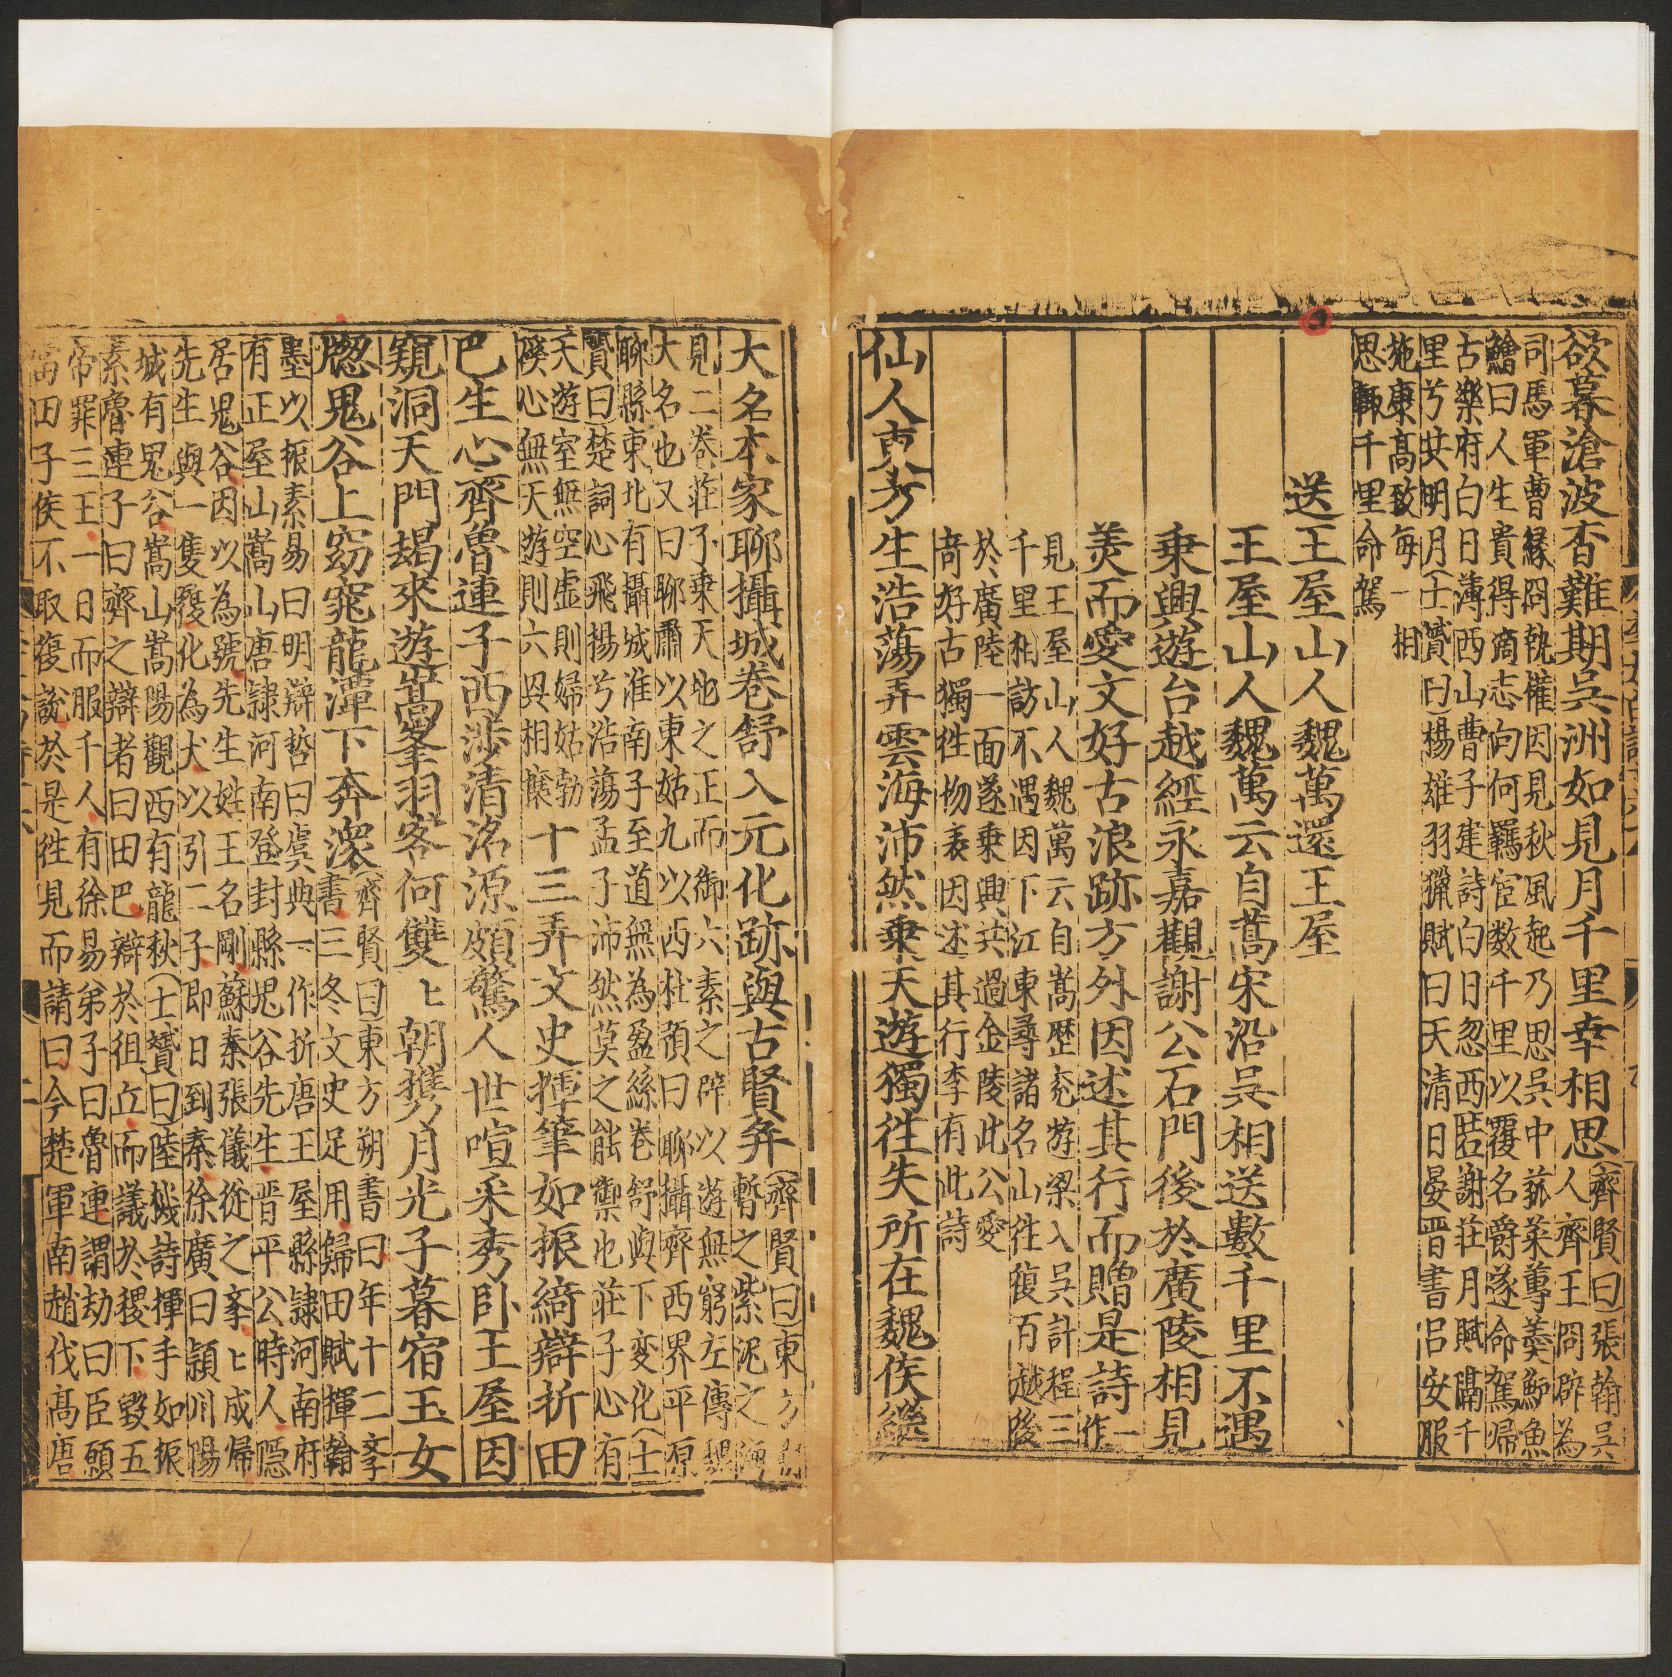 欲暮滄波杳難期吳洲如見月千里幸相思
齊賢曰張翰吳
人齊王冏辟為
司馬軍曹緣冏執權因見秋風起乃思吳中菰菜蓴羹鱸魚
鱠曰人生貴得適志向何羈宦数千里以覆名爵遂命駕歸
古樂府白日薄西山曹子建詩白日忽西匿謝莊月賦隔千
里兮共明月士贇曰楊雄羽獵賦曰天清日晏晋書呂安服
嵇康高致每一相
思輒千里命駕
送王屋山人魏萬還王屋
王屋山人魏萬云自嵩宋沿吳相送數千里不遇
乗興遊台越經永嘉觀謝公石門後於廣陵相見
羨而愛文好古浪跡方外因述其行而贈是詩
一作
見王屋山人魏萬云自嵩歷兖游梁入吳計程三
千里相訪不遇因下江東尋諸名山往復百越後
於廣陵一面遂乗興共過金陵此公愛
竒好古獨往物表因述其行李有此詩
仙人東方生浩蕩弄雲海沛然乗天遊獨往失所在魏侯繼
大名本家聊攝城卷舒入元化跡與古賢并
齊賢曰東方
暫之紫泥之海
見二卷莊子乗天地之正而御六素之辟以遊無窮左傳
大名也又曰聊攝以東姑尤以西杜預曰聊攝齊西界平原
聊縣東北有攝城淮南子至道無為盈縮卷舒與下変化士
贇曰楚詞心飛揚兮浩蕩孟子沛然莫之能禦也莊子心有
天遊室無空虛則婦姑勃
磎心無天遊則六鑿相攘
十三弄文史揮筆如振綺辯折田
巴生心齊魯連子西涉清洛源頗驚人世喧采秀卧王屋因
窺洞天門朅來遊嵩峯羽客何雙〻朝携月光子暮宿玉女
窓鬼谷上窈窕龍潭下奔潨
齊賢曰東方朔書曰年十二李
書三冬文史足用歸田賦揮翰
墨以振素易曰明辯哲曰虞典一作折唐王屋縣隷河南府
有正屋山嵩山唐隷河南登封縣鬼谷先生晋平公時人隱
居鬼谷因以為號先生姓王名剛蘇秦張儀從之孝〻成歸
先生與一隻履化為犬以引二子即日到秦徐廣曰潁川陽
城有鬼谷嵩山嵩陽觀西有龍湫士贇曰陸機詩揮手如振
素魯連子曰齊之辯者曰田巴辯於徂丘而議於稷下毀五
帝罪三王一日而服千人有徐易弟子曰魯連謂劫曰臣願
當田子侯不取復說於是往見而請曰今楚軍南趙伐高唐